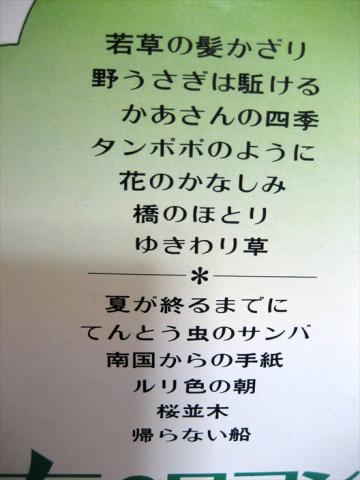 若草の髪かざり
野うさぎは駈ける
かあさんの四季
タンポポのように
花のかなしみ
橋のほとり
ゆきわり草
*
夏が終るまでに
てんとう虫のサンバ
南国からの手紙
ルリ色の朝
桜並木
帰らない船